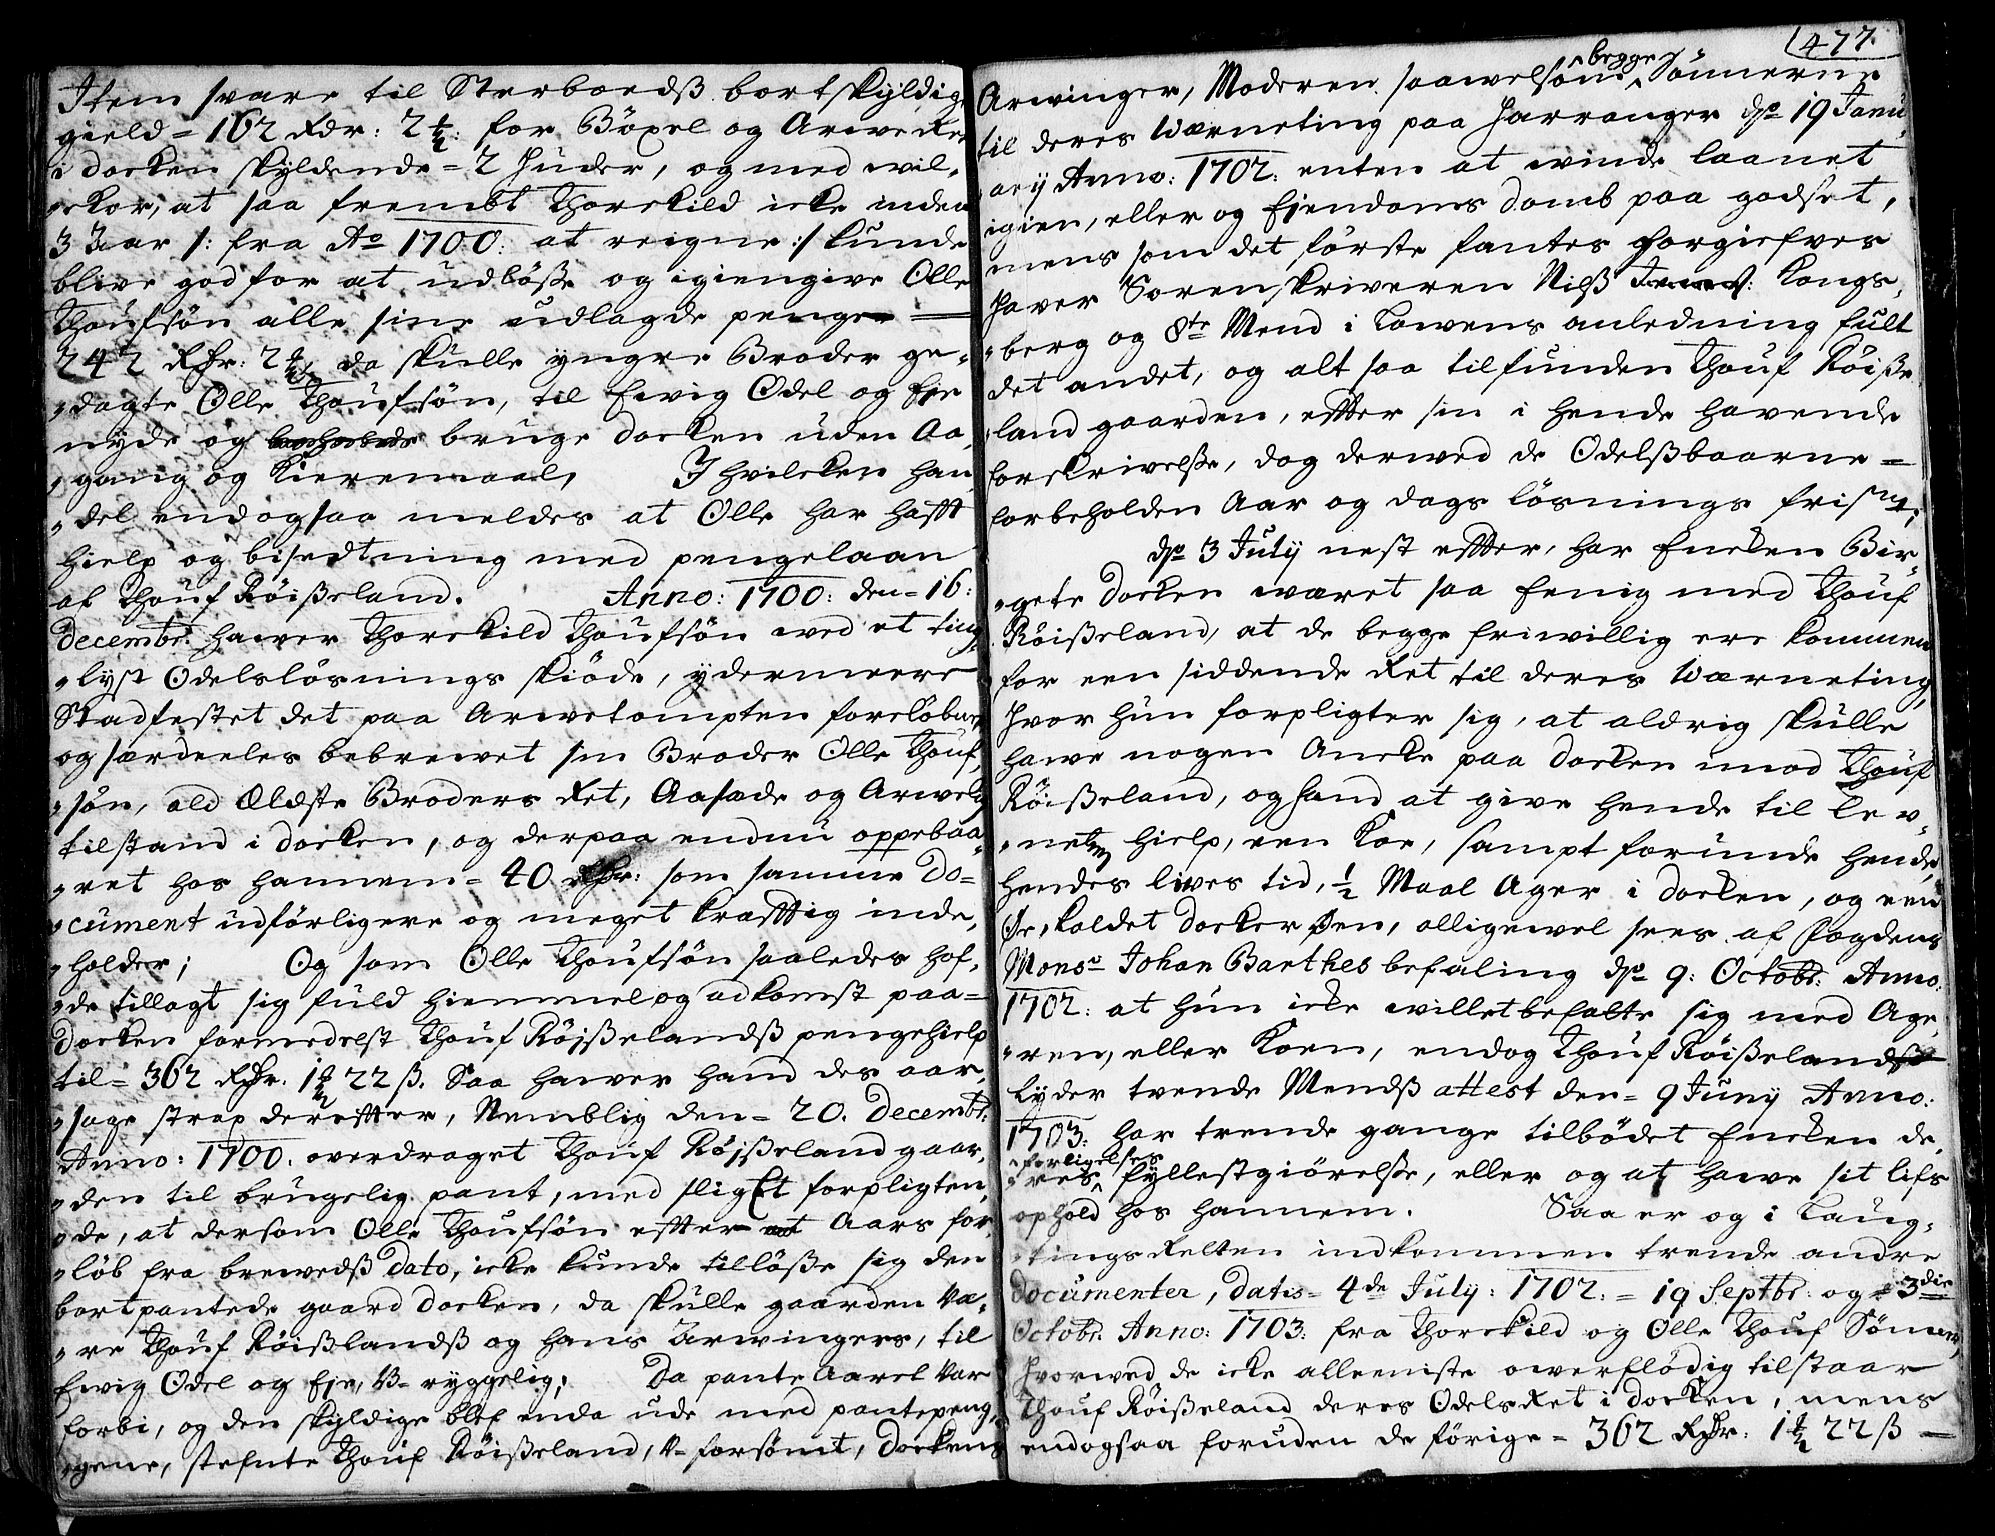 Item svare til Sterboedß bortskyldige
gield = 162 Rdr: 2 ½: for Böxel og Arweræt
i dorken skyldende = 2 Huder, og med wil,
„skor, at saa frembt Thorskild icke inden
3 Aar /: fra Ao 1700: at reigne :/ kunde
blive god for at udlöße og igiengive Olle
Thoufsön alle sine udlagde penge =
242 Rdr: 2 ½ da skulle yngre Broder ge„
„dagte Olle Thoufsön, til Ewig Odel og Eje
nyde og bruge dorken uden Aa„
„gang og Kieremaal, I hvilcken han„
„del endogsaa meldes at Olle har hafft
hielp og bisedtning med pengelaan
af Thouf Röißeland. Anno: 1700: den = 16:
decembr: hawer Thorskild Thoufsön wed et ting„
„lyst Odelslösnings skiöde, ydermeere
Stadfestet det paa Arwetompten forelöbne
og særdeeles bebrewet sin Broder Olle Thouf„
„sön, ald Ældste Broders Ret, Aasæde og Arwelig
tilstand i dorken, og derpaa endnu oppebaa„
„ret hos hannem = 40 Rdr: som samme Do=
„cument udförligere og meget krafftig inde„
„holder; Og som Olle Thoufsön saaledes haf„
„de tillagt sig fuld hiemmel og adkomst paa =
Dorken formedelst Thouf Röjßelandß pengehielp
til = 362 Rdr. 1 ½ 22 ß. Saa hawer hand des aar„
„sage strax derefter, Nemblig den = 20. Decembr:
Anno: 1700. overdraget Thouf Röjßeland gaar„
„den til brugelig pant, med slig Et forpligten„
„de, at dersom Olle Thoufsön efter et Aars for„
„löb fra brewedß Dato, icke kunde tillöße sig den
bortpantede gaard dorken, da skulle gaarden Væ„
„re Thouf Röißlandß og hans Arwingers, til
Ewig Odel og Eje, U- ryggelig; Da pante Aaret Var
forbi, og den skyldige blef enda ude med pantepeng„
„gene, stefnte Thouf Röißeland, U- forsömt, Dorkens
477.
Arwinger, Moderen saawelsom begge Sönnerne
til deres Wærneting paa Harranger dse 19 Janu„
„arij Anno: 1702: enten at winde laanet
igien, eller og Ejendoms domb paa godset,
mens som det förste fantes forgiefves
hawer Sorenskriveren Nilß Kongs„
„berg og 8te Mend i Lowens anledning fult
det andet, og alt saa tilfunden Thouf Röiße„
„land gaarden, efter sin i hende hawende
forskrivelße, dog derwed de Odelßbaarne =
forbeholden Aar og dags lösnings frist;
dse 3 July nest effter, har Encken Bir„
„gete Dorken wæret saa Eenig med Thouf
Röißeland, at de begge friwillig ere kommen
for een siddende Ret til deres Wærneting,
Hvor hun forpligter sig, at aldrig skulle
hawe nogen Ancke paa dorken imod Thouf
Röißeland, og hand at give hende til lev„
„netz hielp, een Koe, sampt forunde hende
hendes lives tid, ½ Maal Ager i dorken, og een
Öe, kaldet Dorker Öen, alligewel sees af Fogdens
Monsr Johan Barthes befaling dse 9: Octobr: Anno:
1702: at hun icke willet befatte sig med Age„
„ren, eller Koen, endog Thouf Röißeland
lyder tvende Mendß attest den = 9 Juny Anno:
1703: har trende gange tilbödet Encken de„
„res forligelses fyllestgiörelse, eller og at hawe sit lifs
ophold hos hannem. Saa er og i Laug„
„tings Retten indkommen trende andre
Documenter, datis = 4de July: 1702: = 19 Septbr: og = 3die
Octobr: Anno: 1703: fra Thorskild og Olle Thouf Sönner,
Hvorwed de icke alleeniste owerflödig tilstaar
Thouf Röißeland deres OdelsRet i Dorken, mens
endogsaa foruden de förige = 362 Rdr: 1 ½ 22 ß =